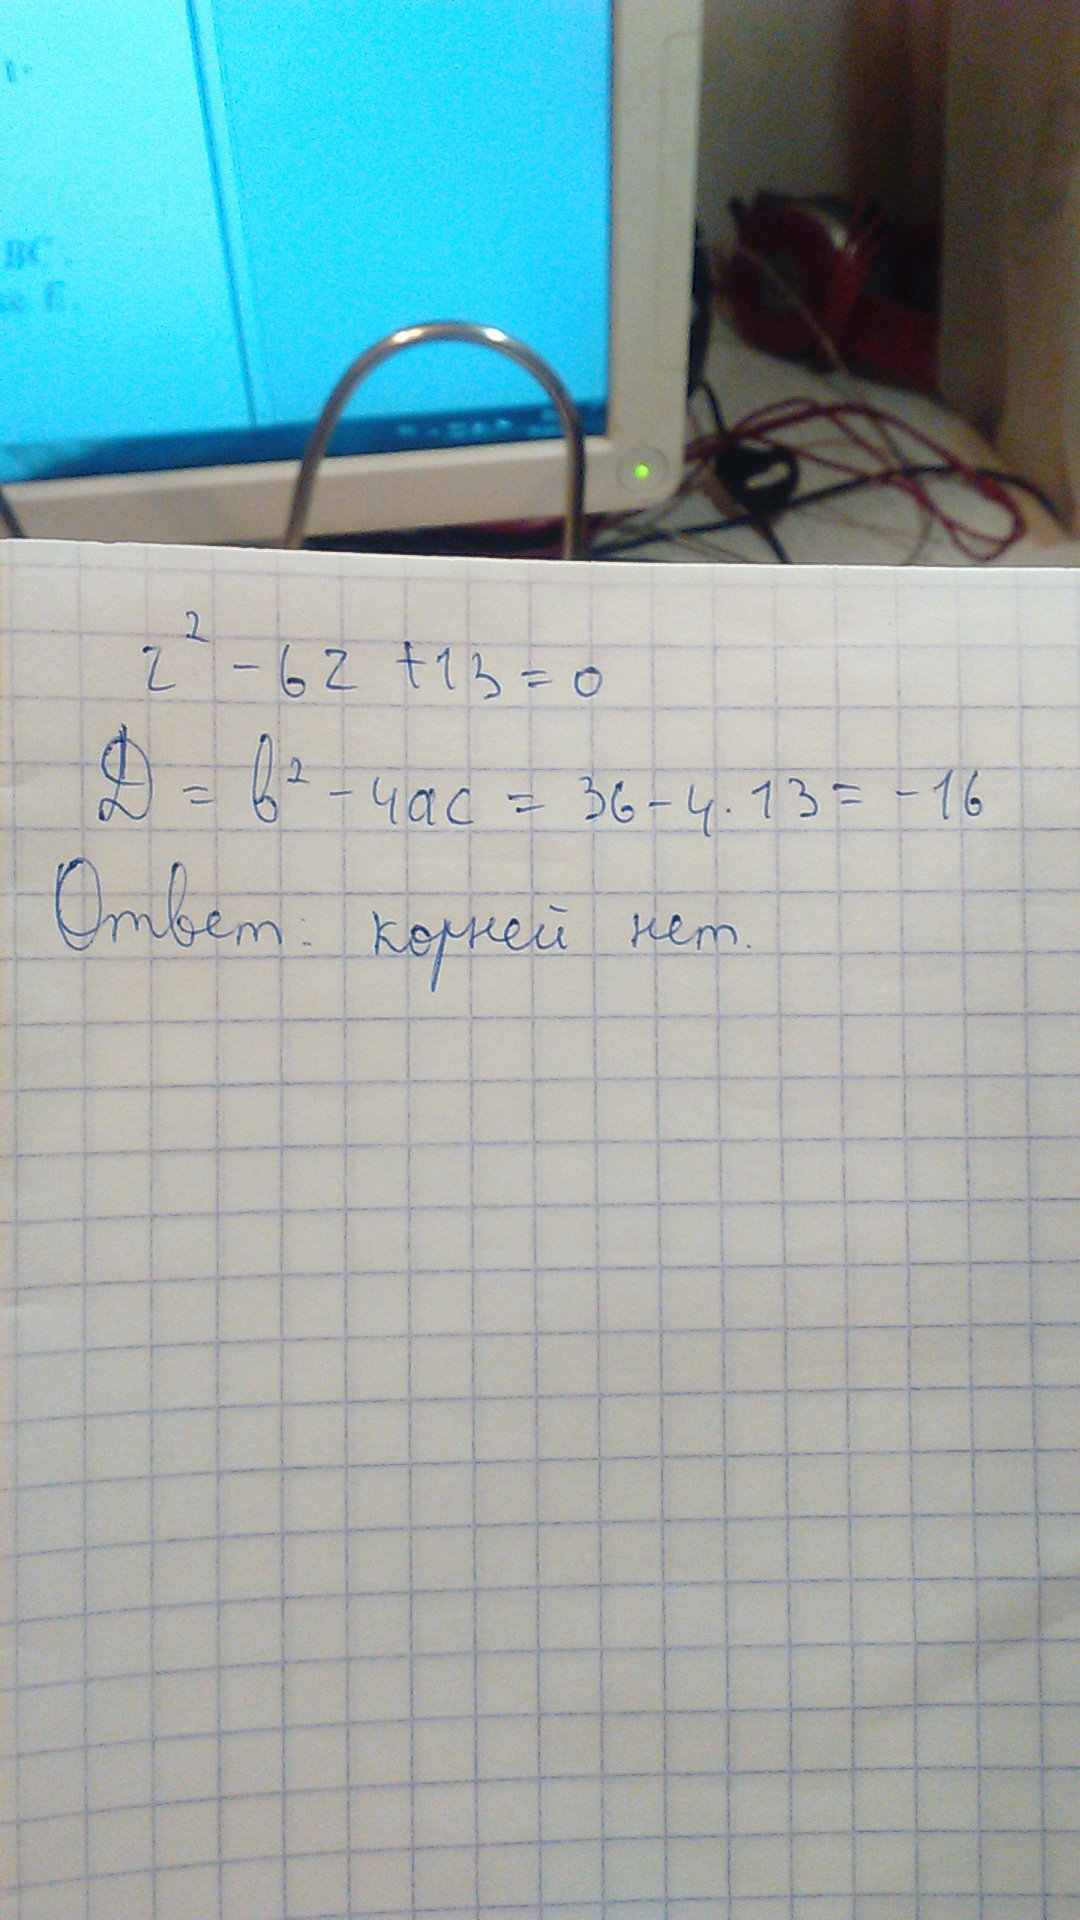 BC.
z² - 6z + 13 = 0
D = b² - 4ac = 36 - 4 · 13 = -16
Ответ: корней нет.